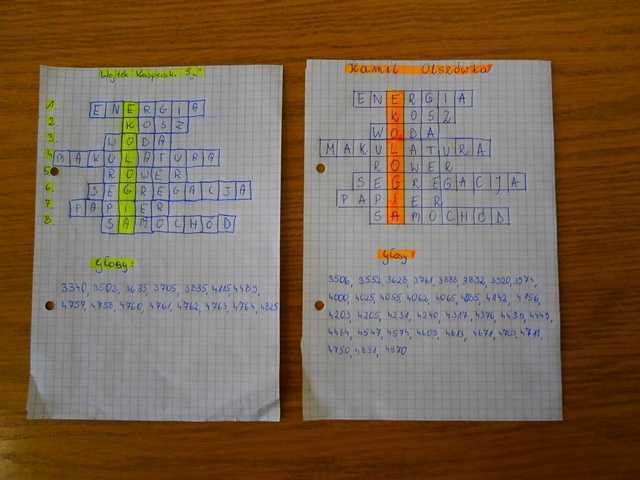 Wojtek
1. ENERGIA
2. KOSZ
3. WODA
4. MAKULATURA
5. ROWER
6. SEGREGACJA
7. PAPIER
8. SAMOCHÓD
Głosy:
3340, 3503, 3635, 3705, 3835, 4185, 4489,
4757, 4758, 4760, 4761, 4762, 4763, 4764, 4825
Kamil Olszówka
ENERGIA
KOSZ
WODA
MAKULATURA
ROWER
SEGREGACJA
PAPIER
SAMOCHÓD
Głosy:
3506, 3552, 3628, 3761, 3888, 3892, 3920, 3974,
4000, 4025, 4055, 4062, 4065, 4142, 4156,
4203, 4205, 4231, 4240, 4317, 4376, 4439, 4449,
4484, 4547, 4574, 4609, 4613, 4671, 4711,
4750, 4831, 4970